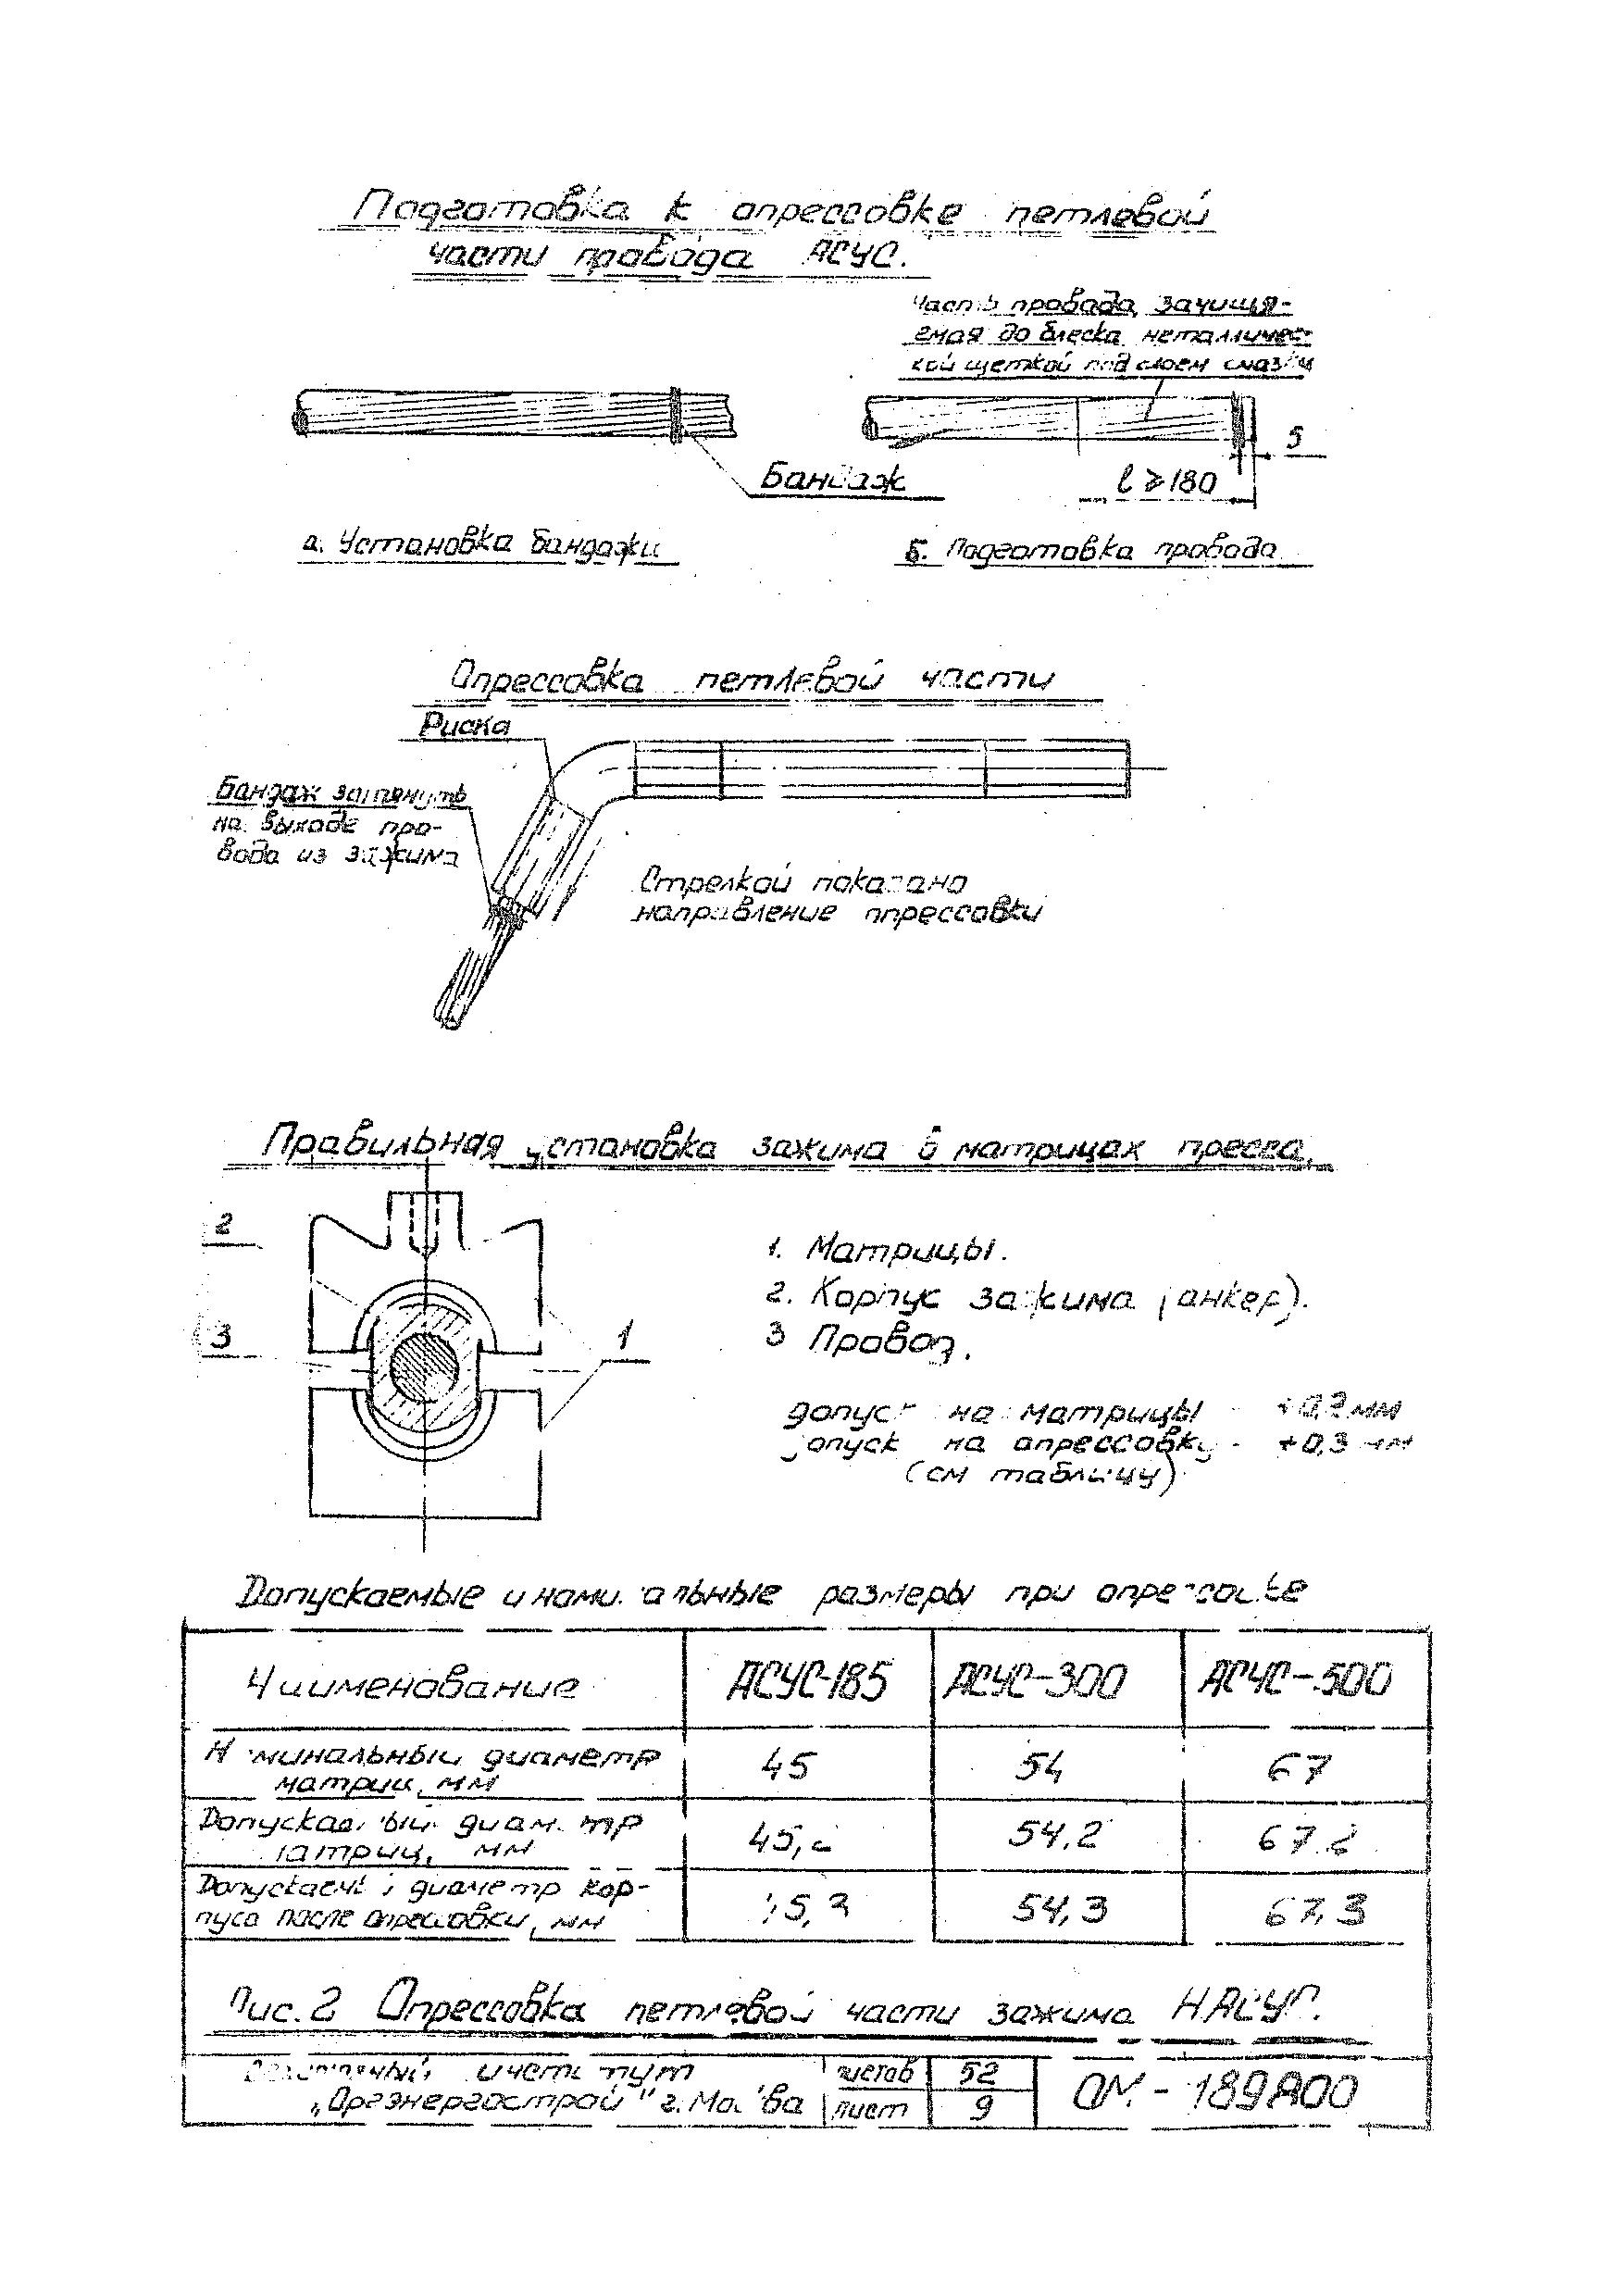 Подготовка к опрессовке петлевой
части провода АСУС.
Часть провода, зачища-
емая до блеска металличес-
кой щеткой под слоем смазки
5
Бандаж
l ≥ 180
а. Установка бандажи
б. Подготовка провода
Опрессовка петлевой части
Риска
Бандаж затянуть
на выходе про-
вода из зажима
Стрелкой показано
направление опрессовки
Правильная установка зажима в матрицах пресса.
2
3
1
1. Матрицы.
2. Корпус зажима (анкер).
3 Провод.
допуск на матрицы - +0,2 мм
допуск на опрессовку - +0,3 мм
(см таблицу)
Допускаемые и номинальные размеры при опрессовке
Наименование АСУС-185 АСУС-300 АСУС-500
Номинальный диаметр
матриц, мм 45 54 67
Допускаемый диаметр
матриц, мм 45,2 54,2 67,2
Допускаемый диаметр кор-
пуса после опрессовки, мм 45,3 54,3 67,3
Рис. 2 Опрессовка петлевой части зажима НАСУС.
институт листов 52
„Оргэнергострой" г. Москва лист 9
ОМ - 189800